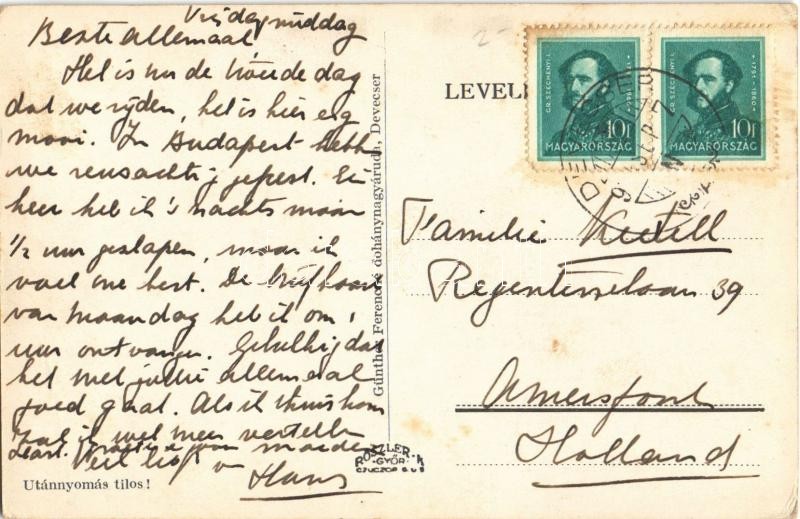 Vrijdagmiddag
Beste allemaal
Het is nu de tweede dag
dat we rijden, het is hier erg
mooi. In Budapest hebb
we reusachtig gefeest. Ei
heer heb ik 's nachts maar
1/2 uur geslapen, maar ik
voel me best. De briefkaart
van Maandag heb ik om 1
uur ontvangen. Gelukkig dat
het met jullie allemaal
goed gaat. Als ik thuis kom
zal ik wel meer vertellen
Hart. van moeder
Veel liefs v
Hans
Utánnyomás tilos!
Günther Ferencné dohánynagyáruda, Devecser
ROSZLER-K
GYŐR
CZUCZOR G U 6
LEVEL
GR. SZÉCHENYI I. 1791-1860
10f
MAGYARORSZÁG
GR. SZÉCHENYI I. 1791-1860
10f
MAGYARORSZÁG
Familie
Regentesselaan 39
Amersfoort
Holland